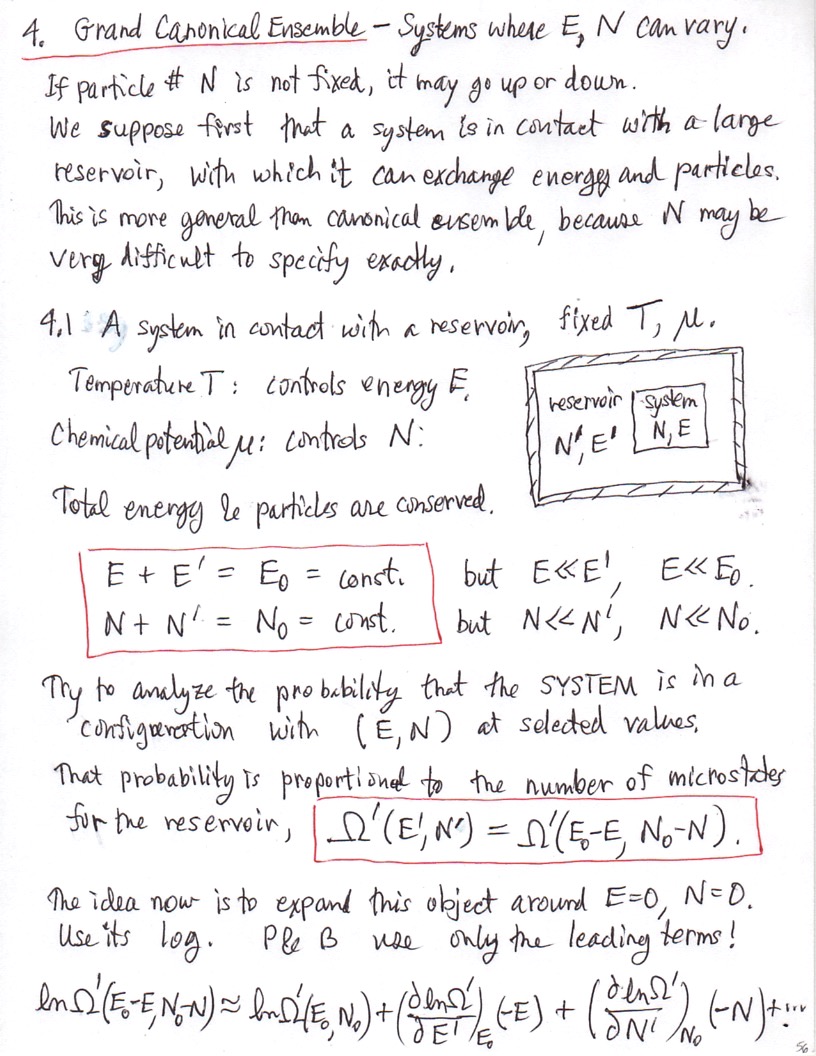 4. Grand Canonical Ensemble – Systems where E, N can vary.
If particle # N is not fixed, it may go up or down.
We suppose first that a system is in contact with a large
reservoir, with which it can exchange energy and particles.
This is more general than canonical ensemble, because N may be
very difficult to specify exactly.
4.1 A system in contact with a reservoir, fixed T, μ.
Temperature T: controls energy E.
Chemical potential μ: controls N:
reservoir
N', E'
system
N, E
Total energy & particles are conserved.
E + E' = E₀ = const. but E<<E', E<<E₀.
N + N' = N₀ = const. but N<<N', N<<N₀.
Try to analyze the probability that the SYSTEM is in a
configuration with (E, N) at selected values.
That probability is proportional to the number of microstates
for the reservoir, Ω'(E', N') = Ω'(E₀-E, N₀-N).
The idea now is to expand this object around E=0, N=0.
Use its log. P & B use only the leading terms!
lnΩ'(E₀-E, N₀-N) ≈ lnΩ'(E₀, N₀) + (∂lnΩ'/∂E')_E₀ (-E) + (∂lnΩ'/∂N')_N₀ (-N) + ...
56